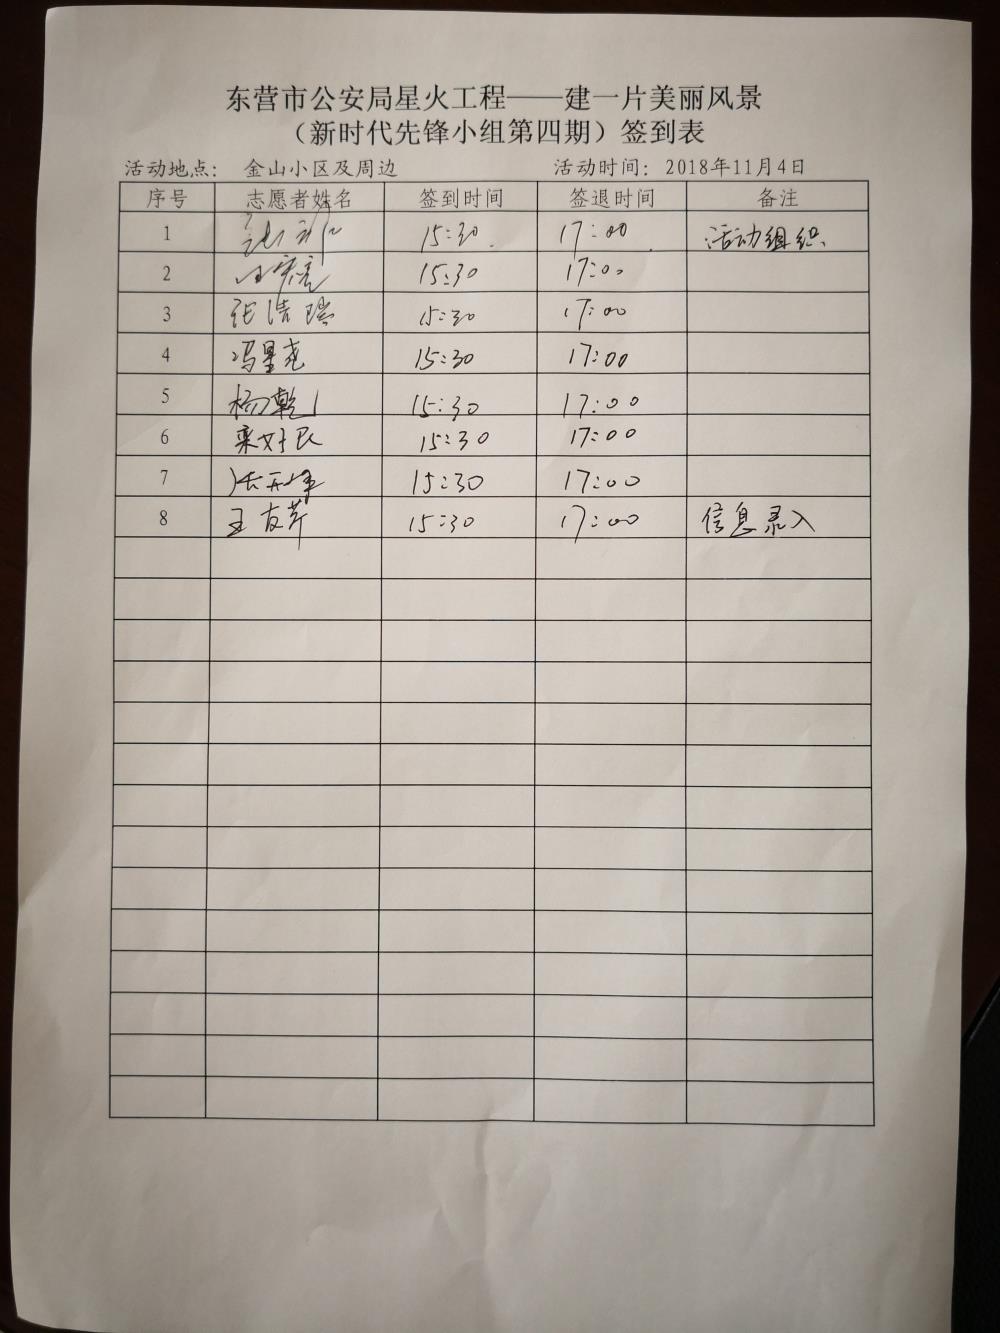 东营市公安局星火工程——建一片美丽风景
（新时代先锋小组第四期）签到表
活动地点： 金山小区及周边 活动时间：2018年11月4日
序号 志愿者姓名 签到时间 签退时间 备注
1 15:30 17:00 活动组织
2 15:30 17:00
3 张浩瑞 15:30 17:00
4 冯星尧 15:30 17:00
5 杨乾 15:30 17:00
6 栾好民 15:30 17:00
7 15:30 17:00
8 王友芹 15:30 17:00 信息录入